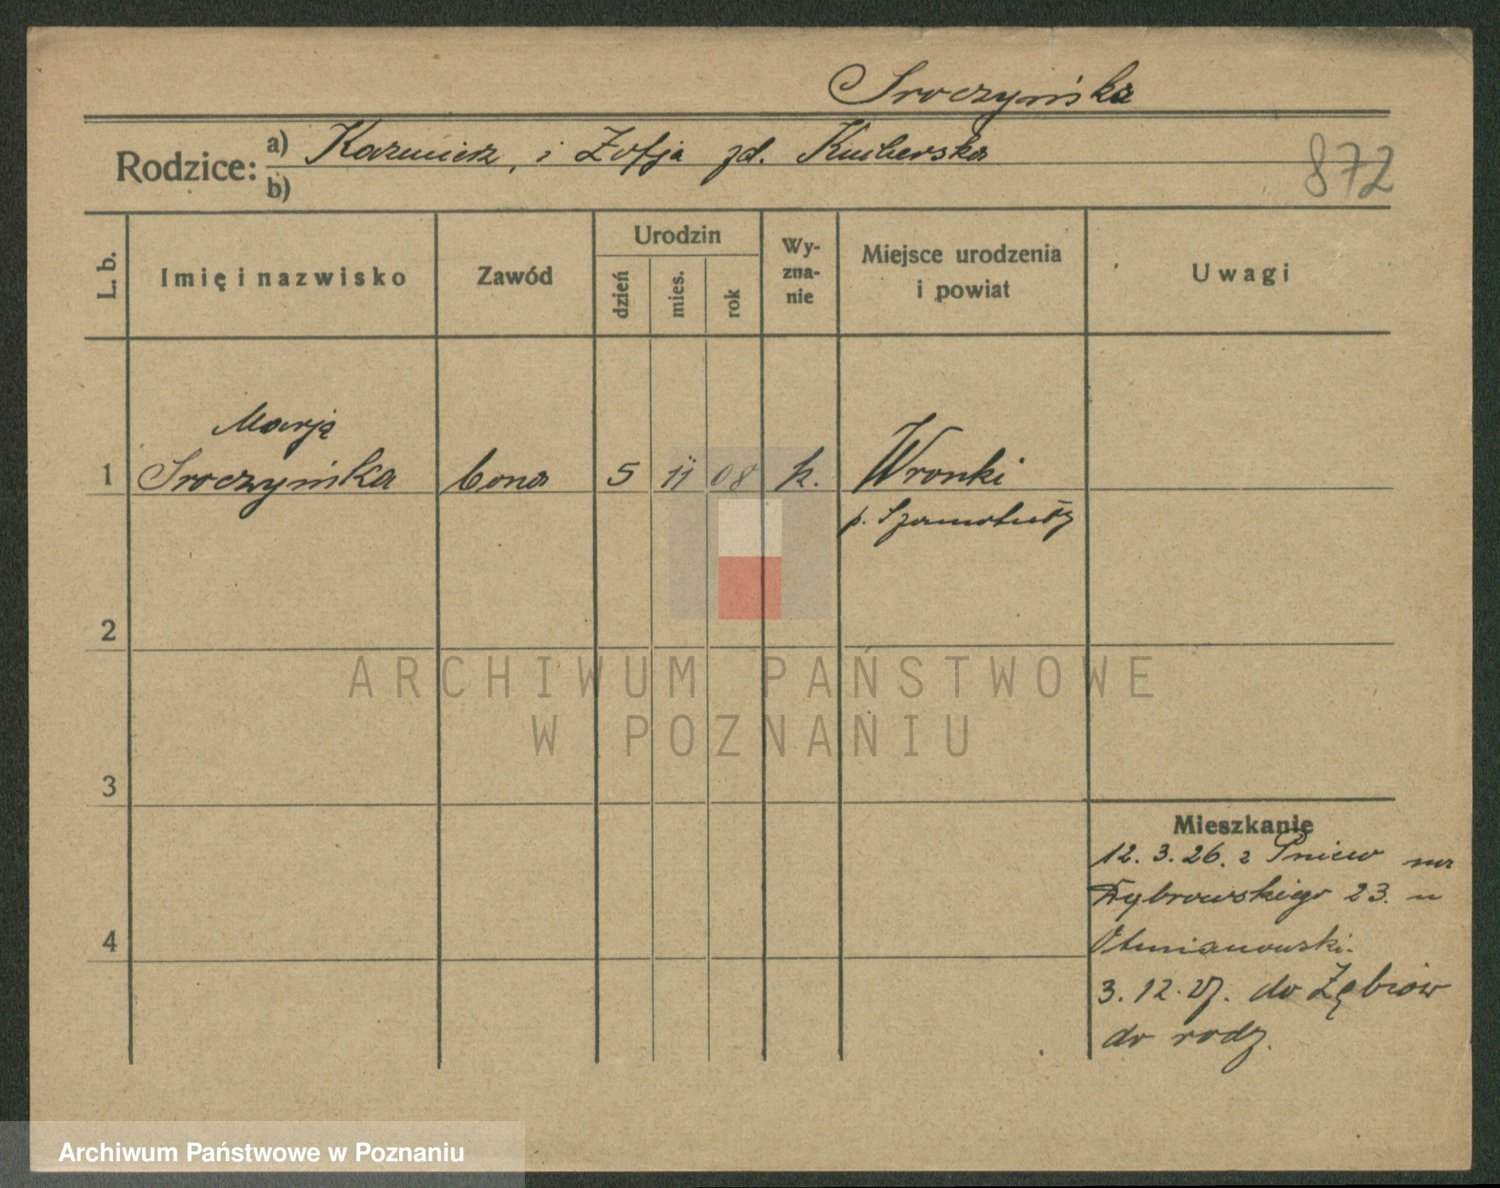 Sroczyńska
Rodzice:
a) Kazmierz, i Zofja zd. Kuberska
b)
872
L. b.
Imię i nazwisko
Zawód
Urodzin
dzień
mies.
rok
Wy-
zna-
nie
Miejsce urodzenia
i powiat
Uwagi
Marja
1 Sroczyńska bona 5 11 08 k. Wronki
p. Szamotuły
2
ARCHIWUM PAŃSTWOWE
W POZNANIU
3
Mieszkanie
12. 3. 26. z Pniew na
Dąbrowskiego 23. u
4
3. 12. 27. do
do rodz.
Archiwum Państwowe w Poznaniu